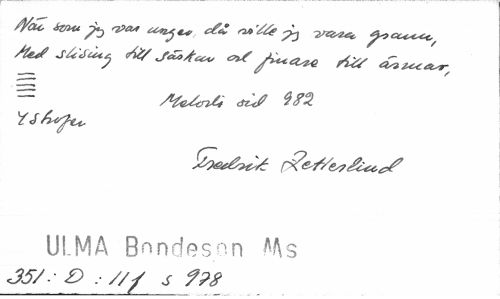 När som jg var unger, då ville jg vara grann,
Med sliding till särkar och finare till ärmar,
Melodi sid 982
4 Strofer
Fredrik Zetterlind
ULMA Bondeson Ms
351: D : 11 f s 978